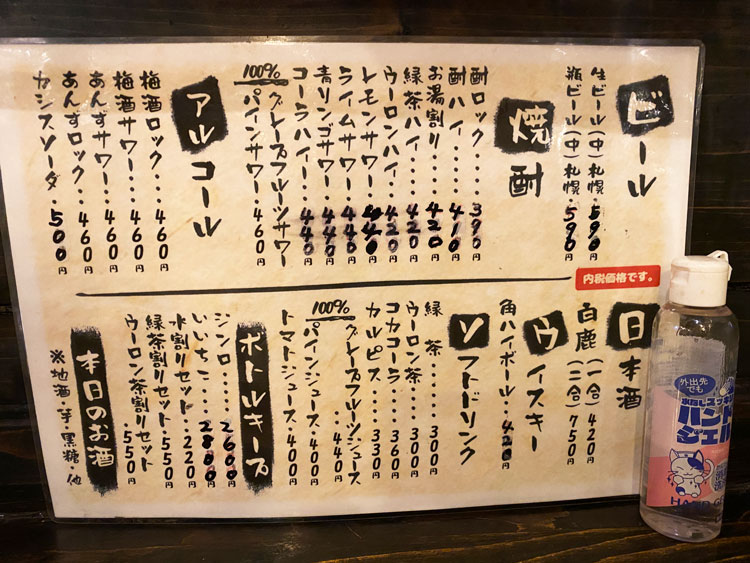 ビール
生ビール(中)札幌・590円
瓶ビール(中)札幌・590円
焼酎
酎ロック・・・・390円
酎ハイ・・・・・410円
お湯割り・・・・420円
緑茶ハイ・・・・420円
ウーロンハイ・・420円
レモンサワー・・440円
ライムサワー・・440円
青リンゴサワー・440円
コーラハイ・・・440円
100%
グレープフルーツサワー
パインサワー・・460円
アルコール
梅酒ロック・・・460円
梅酒サワー・・・460円
あんずサワー・・460円
あんずロック・・460円
カシスソーダ・・500円
内税価格です。
日本酒
白鹿(一合)420円
(二合)750円
ウイスキー
角ハイボール・・420円
ソフトドリンク
緑茶・・・・・300円
ウーロン茶・・・300円
コカコーラ・・・360円
カルピス・・・・330円
100%
グレープフルーツジュース
・・・・440円
パインジュース・・400円
トマトジュース・・400円
ボトルキープ
ジンロ・・・・2600円
いいちこ・・・・2800円
水割りセット・・・220円
緑茶割りセット・・550円
ウーロン茶割りセット
・・550円
本日のお酒
※地酒・芋・黒糖・他
外出先でも
ハンド
ジェル